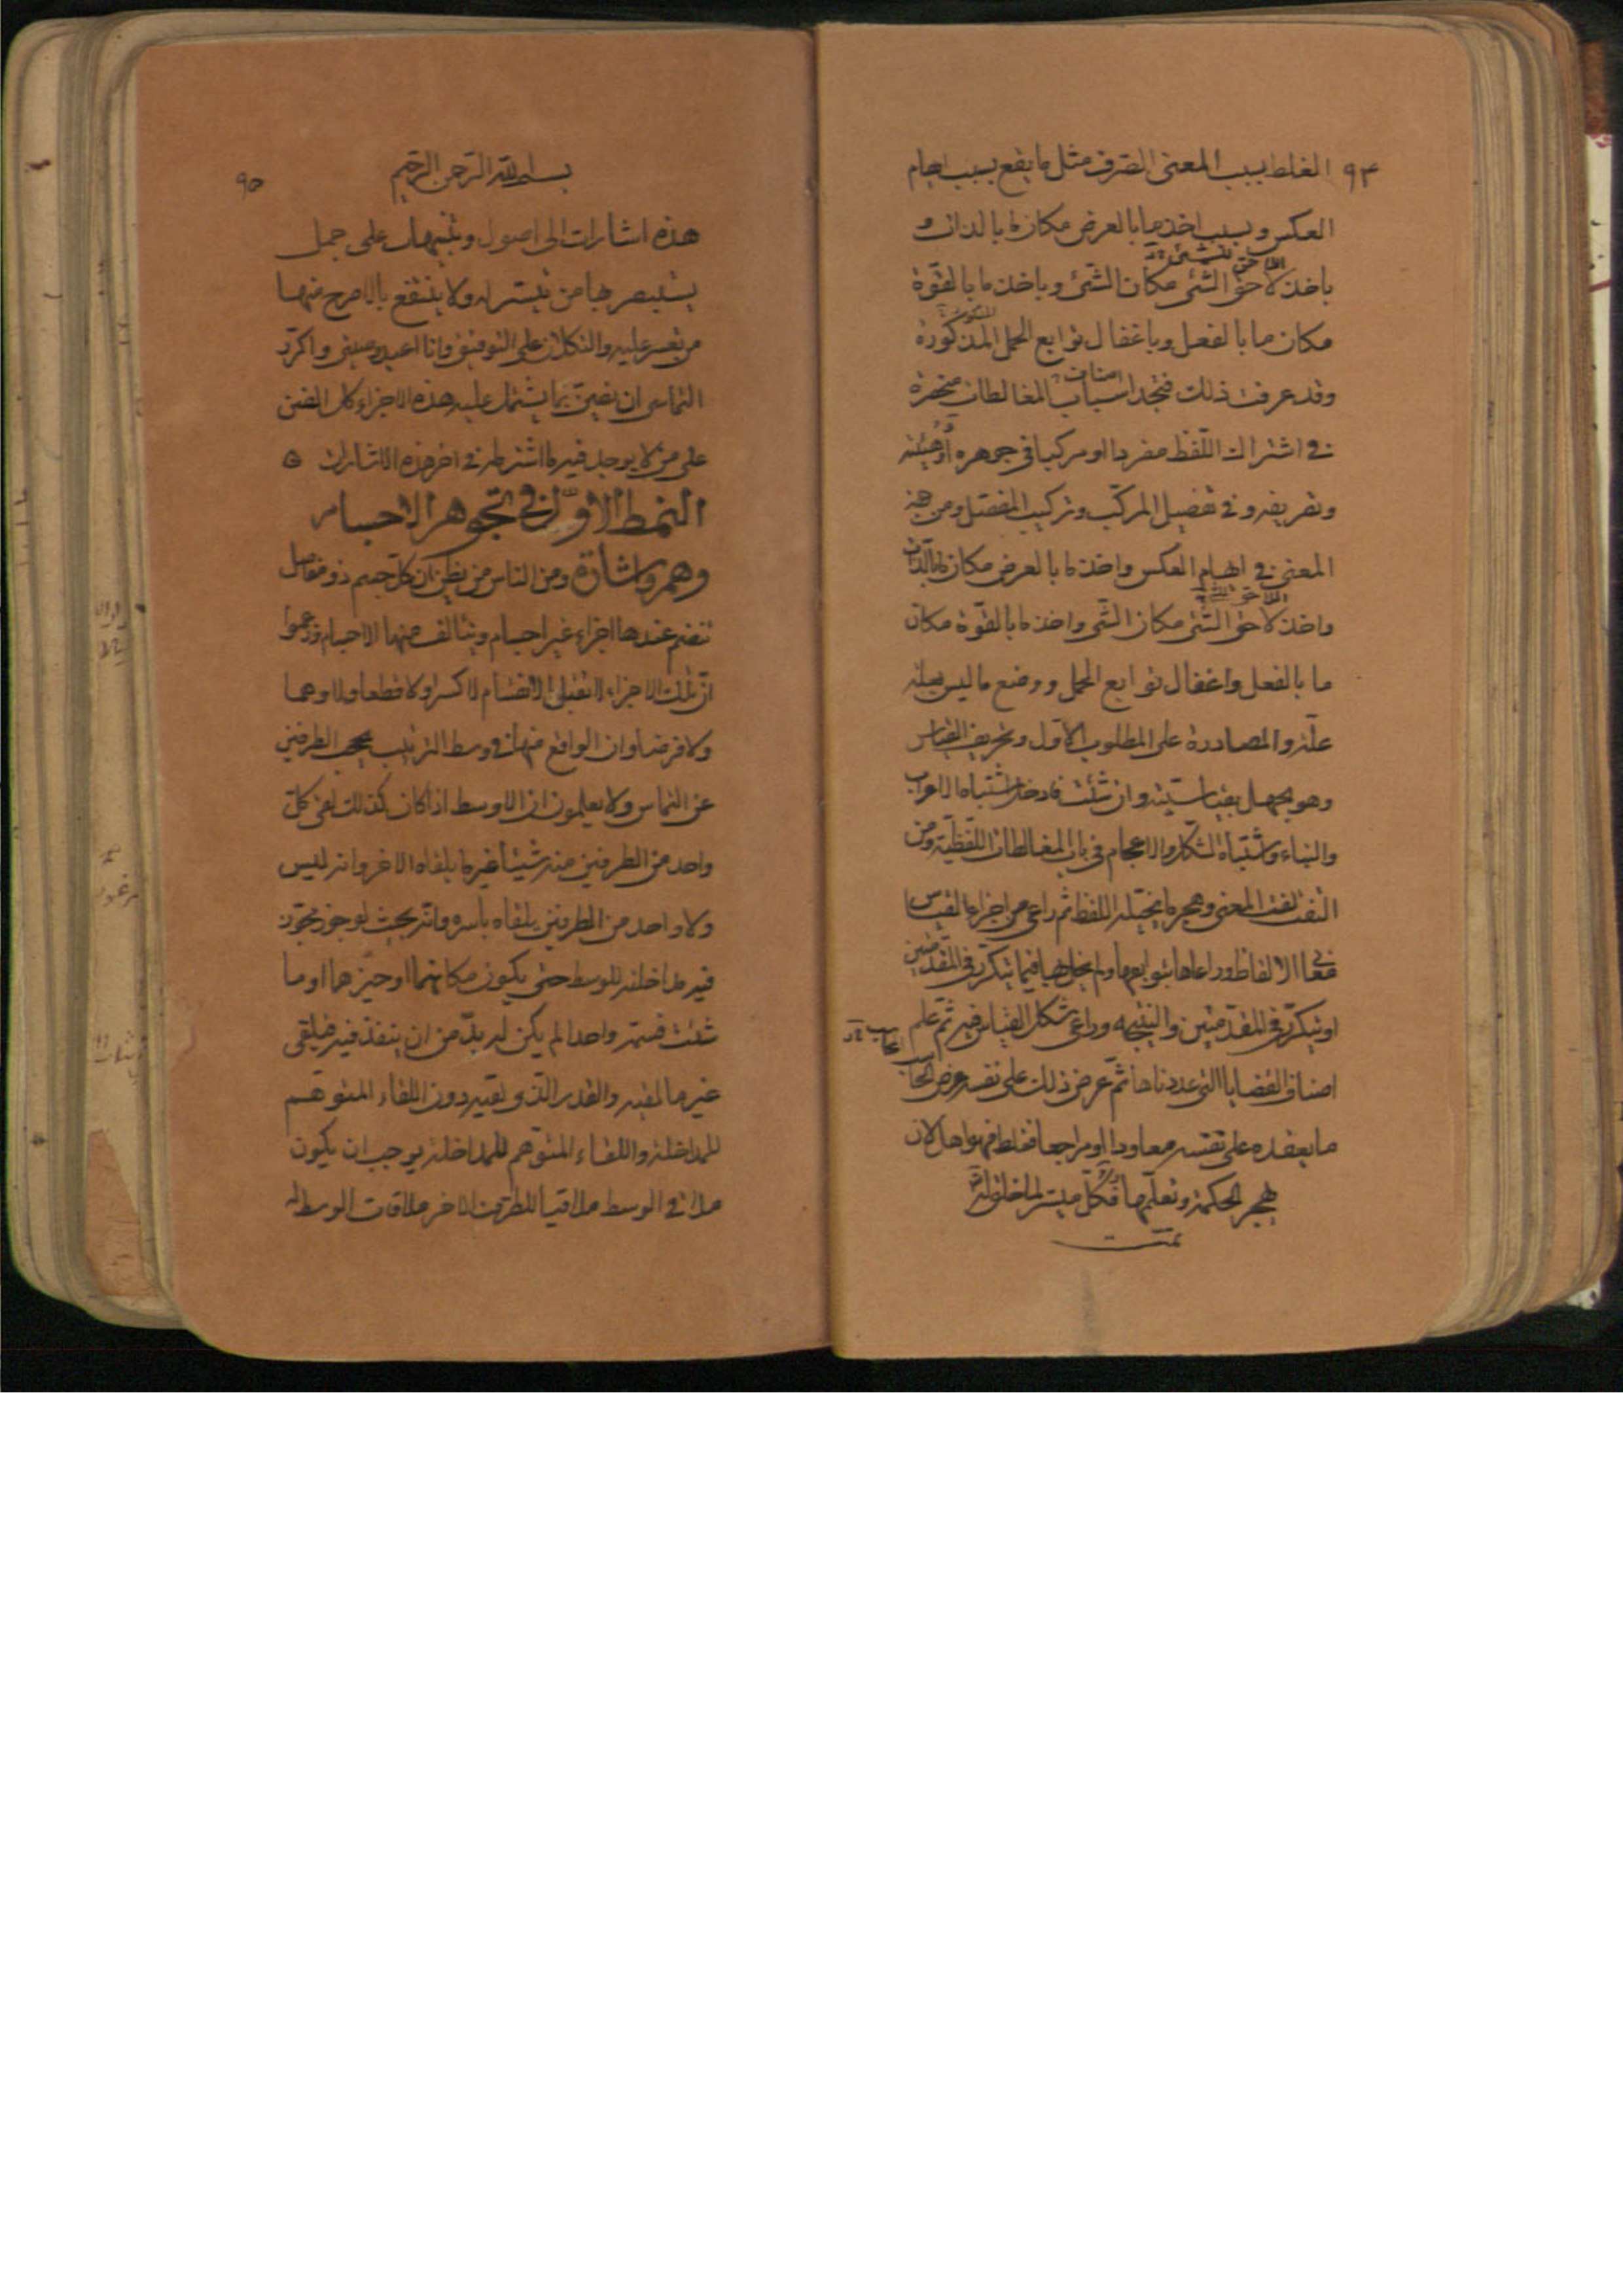 ٩٤
الغلط بسبب المعنى الصرف مثل ما يقع بسبب ايهام
العكس وبسبب اخذ ما بالعرض مكان ما بالذات و
باخذ لاحق الشئ مكان الشئ وباخذ ما بالقوة
مكان ما بالفعل وباغفال توابع الحمل المذكورة
وقد عرفت ذلك فتجد اسباب المغالطات منحصرة
اصناف
فى اشتراك اللفظ مفردا او مركبا فى جوهره او هيئته
وتصريفه وفى تفصيل المركب وتركيب المفصل ومن جهة
المعنى فى ايهام العكس واخذ ما بالعرض مكان ما بالذات
واخذ لاحق الشئ مكان الشئ واخذ ما بالقوة مكان
ما بالفعل واغفال توابع الحمل ووضع ما ليس بعلة
علة والمصادرة على المطلوب الاول وتحريف القياس
وهو الجهل بقياسيته وان شئت فادخل اشتباه الاعراب
والبناء واشتباه الشكل والاعجام فى باب المغالطات اللفظية ومن
التفت لفت المعنى وهجر ما يخيله اللفظ ثم راعى من اجزاء القياس
معانى الالفاظ وراعاها بتوابعها ولم يخل بها فيما يتكرر فى المقدمتين
او يتكرر فى المقدمتين والنتيجة وراعى شكل القياس فيه ثم علم
اصناف القضايا التى عددناها ثم عرض ذلك على نفسه عرض الحاسب
ما يعقده على نفسه معاودا او مراجعا فغلط فهو اهل لان
يهجر الحكمة وتعلمها فكل ميسر لما خلق له
تمت
٩٥
بسم الله الرحمن الرحيم
هذه اشارات الى اصول وتنبيهات على جمل
يستبصر بها من تيسر له ولا ينتفع بالاصرح منها
من تعسر عليه والتكلان على التوفيق وانا اعيد وصيتى واكرر
التماسى ان يضن بما يشتمل عليه هذه الاجزاء كل الضن
على من لا يوجد فيه ما اشترطه فى اخر هذه الاشارات ه
النمط الاول فى تجوهر الاجسام
وهم واشارة ومن الناس من يظن ان كل جسم ذو مفاصل
تنضم عندها اجزاء غير اجسام ويتالف منها الاجسام وزعموا
ان تلك الاجزاء لا تقبل الانقسام لا كسرا ولا قطعا ولا وهما
ولا فرضا وان الواقع منها فى وسط الترتيب يحجب الطرفين
عن التماس ولا يعلمون ان الاوسط اذا كان كذلك لقى كل
واحد من الطرفين منه شيئا غير ما يلقاه الاخر وانه ليس
ولا واحد من الطرفين يلقاه باسره وانه بحيث لو جوز مجوز
فيه مداخلته للوسط حتى يكون مكانهما او حيزهما او ما
شئت فسمه واحدا لم يكن له بد من ان ينفذ فيه فيلقى
غير ما لقيه والقدر الذى لقيه دون اللقاء المتوهم
للمداخلة واللقاء المتوهم للمداخلة يوجب ان يكون
ملاقى الوسط ملاقيا للطرف الاخر ملاقات الوسط له